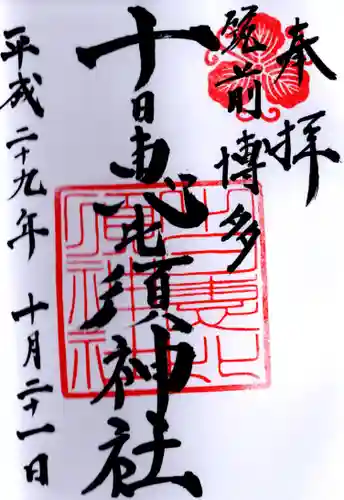 奉拝
筑前博多
十日恵比須神社
平成二十九年 十月二十一日
十日恵比須神社